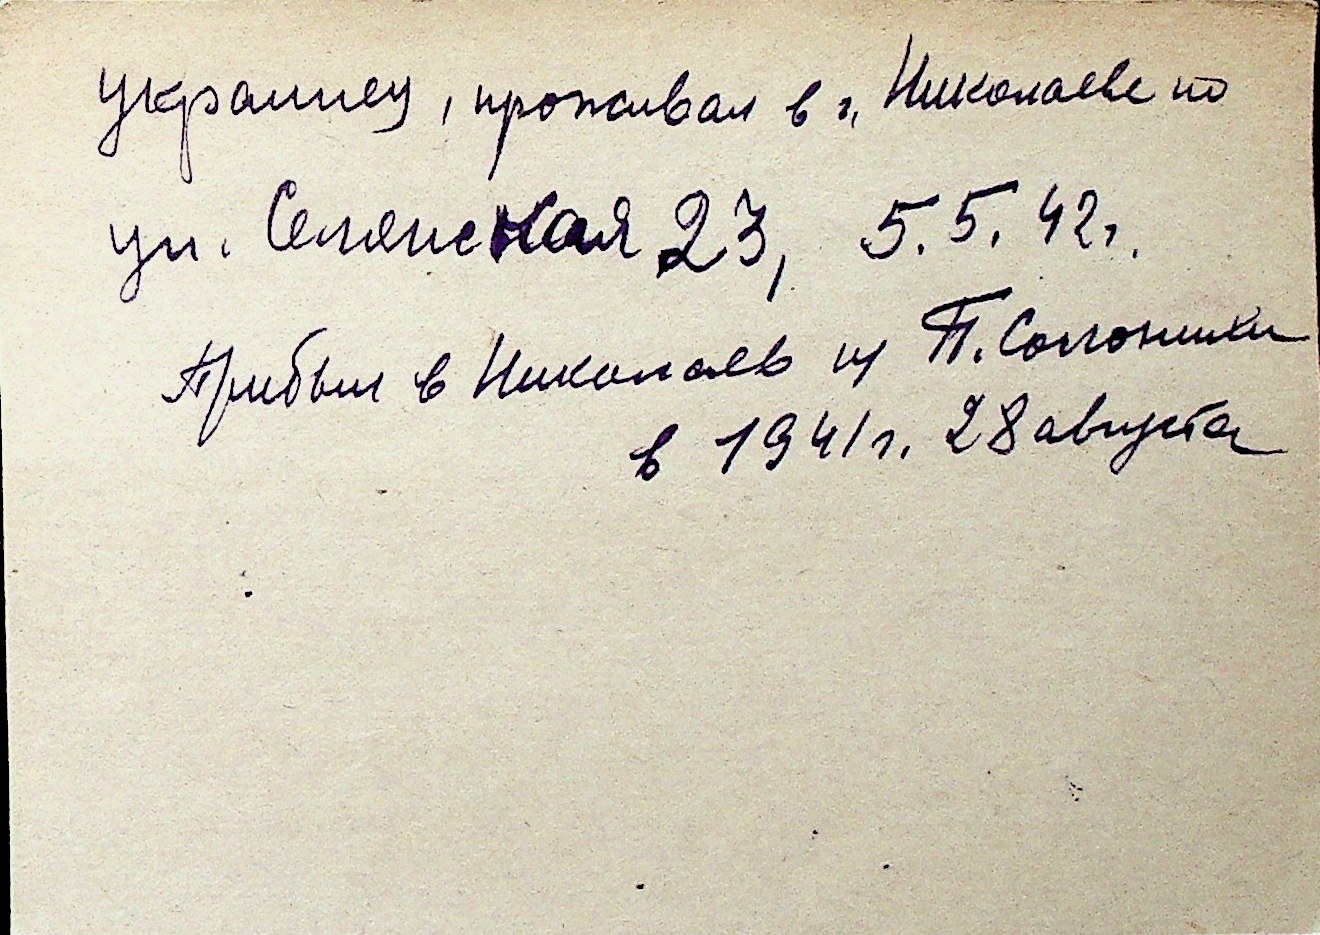 украинец, проживал в г. Николаеве по
ул. Селянская 23, 5.5.42г.
Прибыл в Николаев из П. Солонихи
в 1941г. 28 августа